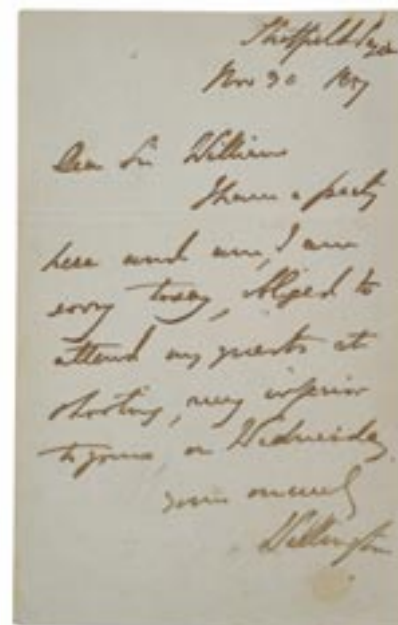 Nov 30
Dear Sir William
I have a party
here and am, I am
sorry to say, obliged to
attend my guests at
shooting, very inferior
to yours, on Wednesday.
Yours sincerely
Wellington